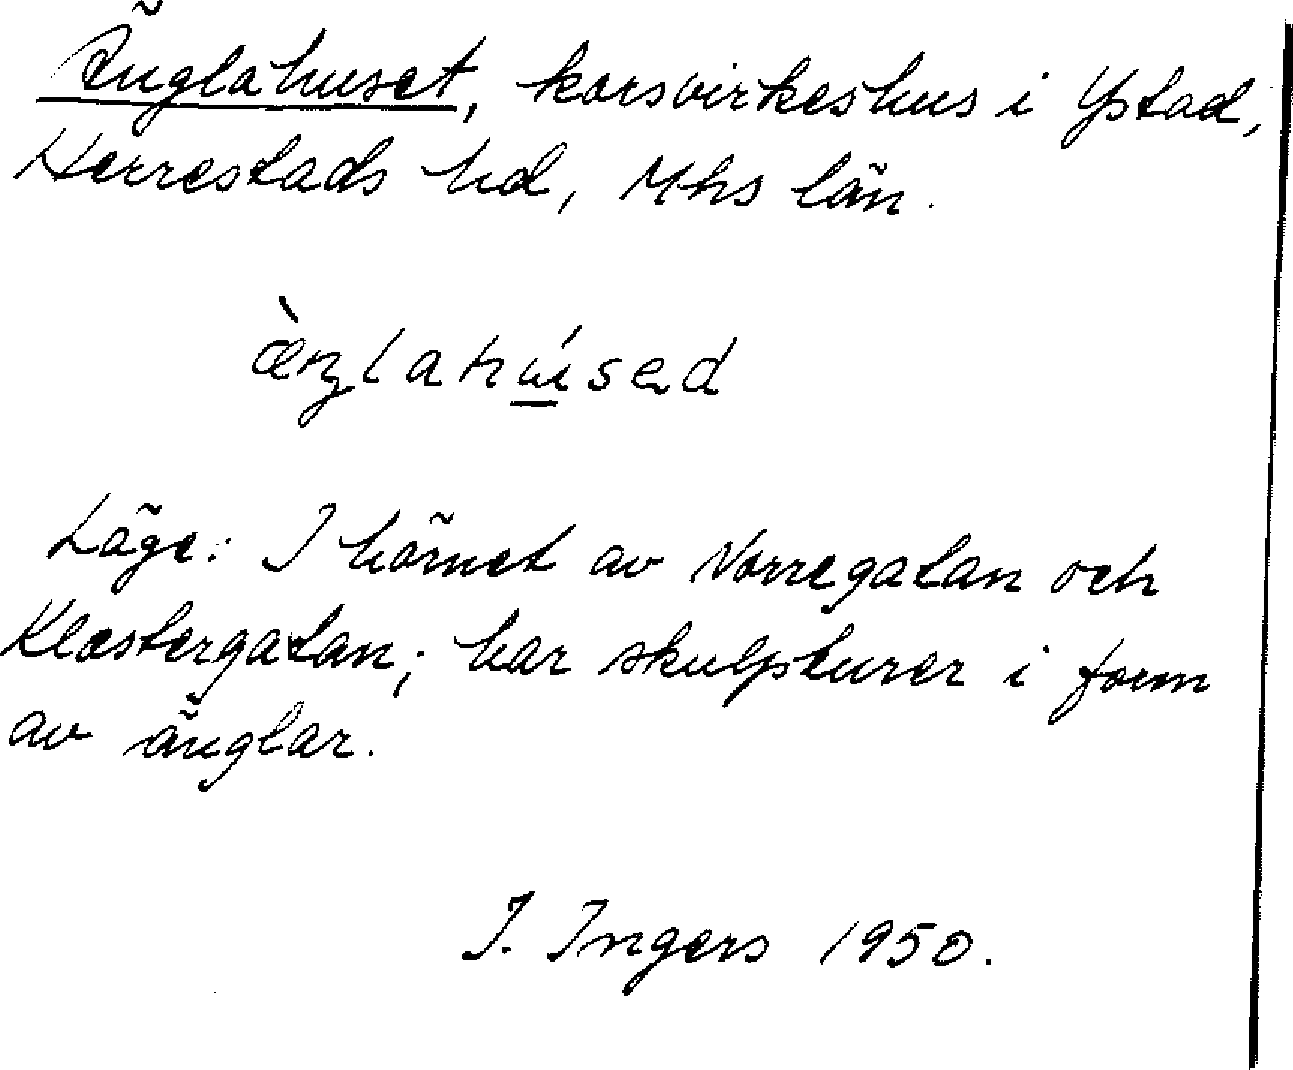 Änglahuset, korsvirkeshus i Ystad,
Herrestads hd, Mhs län.
æ̀ŋlahú̲sed
Läge: I hörnet av Norregatan och
Klostergatan; har skulpturer i form
av änglar.
I. Ingers 1950.